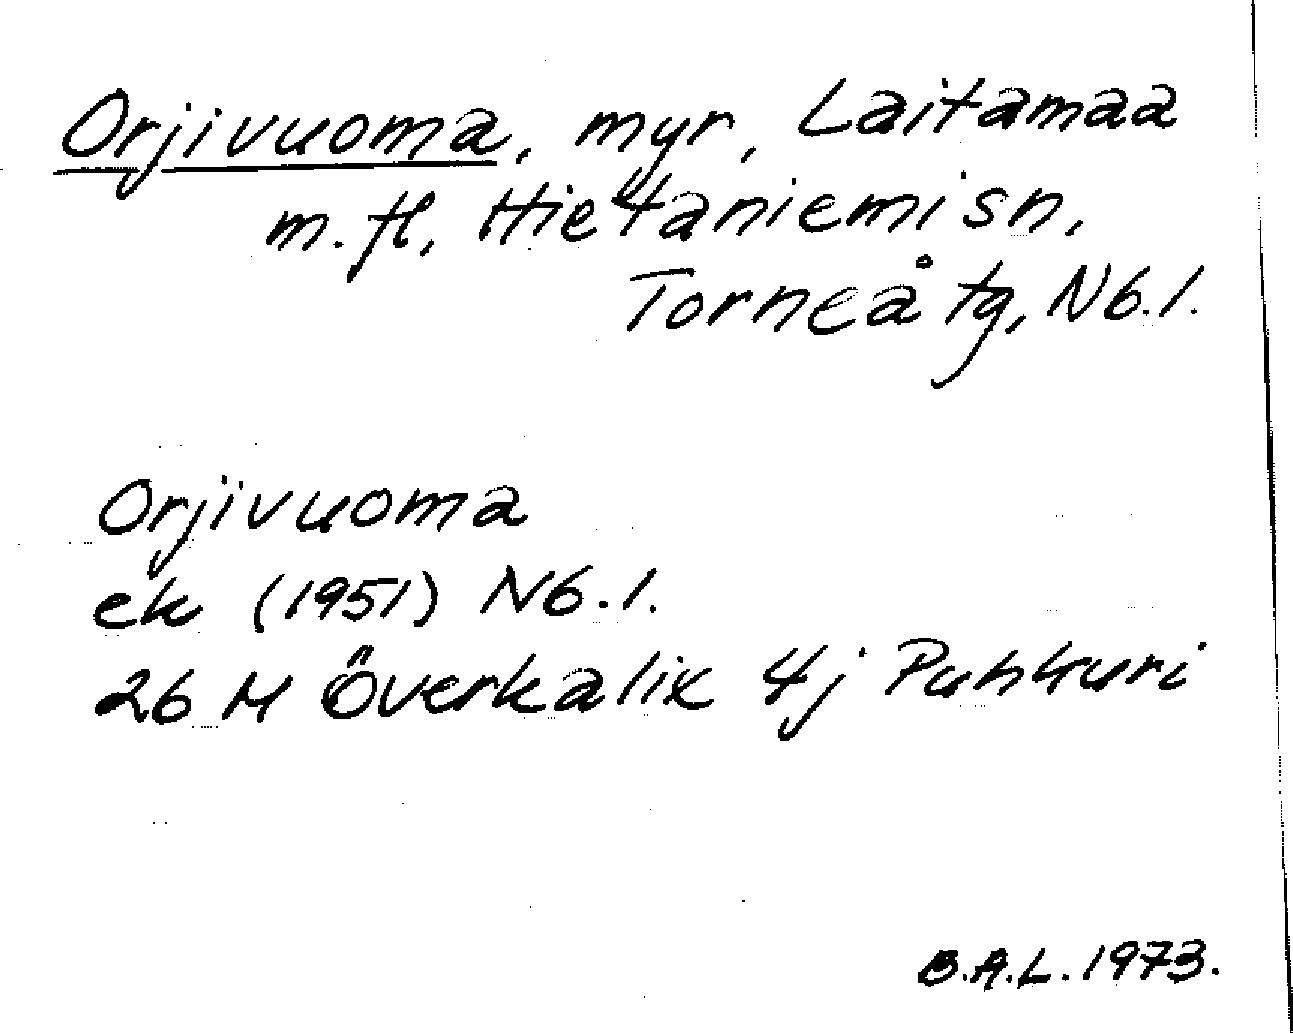 Orjivuoma, myr, Laitamaa
m.fl, Hietaniemi sn,
Torneå tg, Nb.l.
Orjivuoma
ek (1951) Nb.l.
26 M Överkalix 4j Puhkuri
B.A.L. 1973.